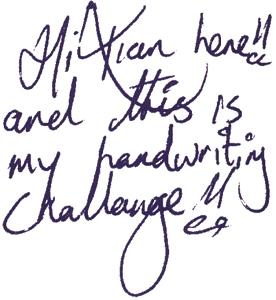 Hi Xian here!!
and this is
my handwriting
challange!!